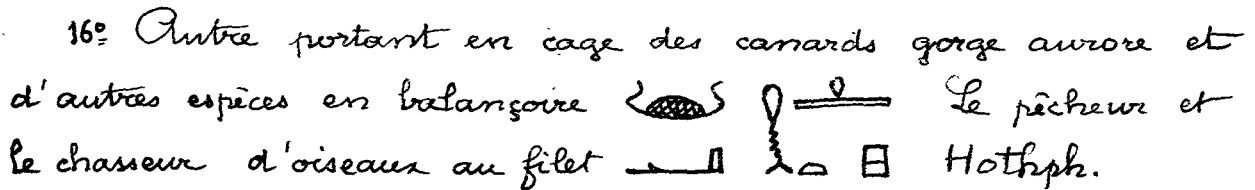 16º Autre portant en cage des canards gorge aurore et
d'autres espèces en balançoire Le pêcheur et
le chasseur d'oiseaux au filet Hothph.